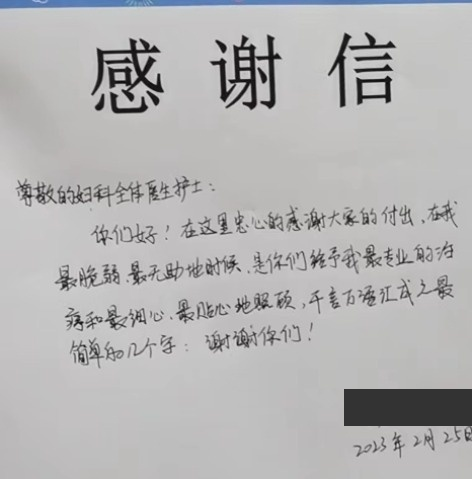 感谢信
尊敬的妇科全体医生护士：
你们好！在这里忠心的感谢大家的付出，在我
最脆弱、最无助地时候，是你们给予我最专业的治
疗和最细心、最贴心地照顾，千言万语汇成之最
简单的几个字：谢谢你们！
2023年2月25日